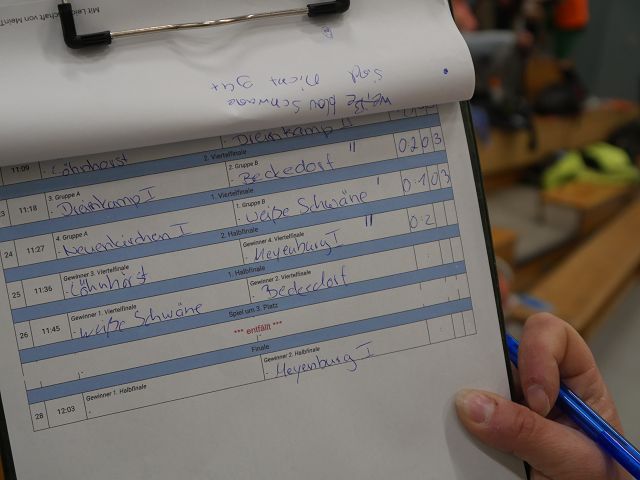 Mit Leidenschaft von Mein
weiße blau Schwäne
Sind nicht gut
11:09 Löhnhorst Dreienkamp II
2. Viertelfinale
11:18 3. Gruppe A Dreienkamp I 2. Gruppe B Beckedorf " 0:2 0 3
1. Viertelfinale
24 11:27 4. Gruppe A Neuenkirchen I 1. Gruppe B weiße Schwäne ' 0:1 0 3
2. Halbfinale
25 11:36 Gewinner 3. Viertelfinale Löhnhorst Gewinner 4. Viertelfinale Meyenburg I " 0:2
1. Halbfinale
26 11:45 Gewinner 1. Viertelfinale weiße Schwäne Gewinner 2. Viertelfinale Beckedorf
Spiel um 3. Platz
*** entfällt ***
Finale
28 12:03 Gewinner 1. Halbfinale - Gewinner 2. Halbfinale Meyenburg I